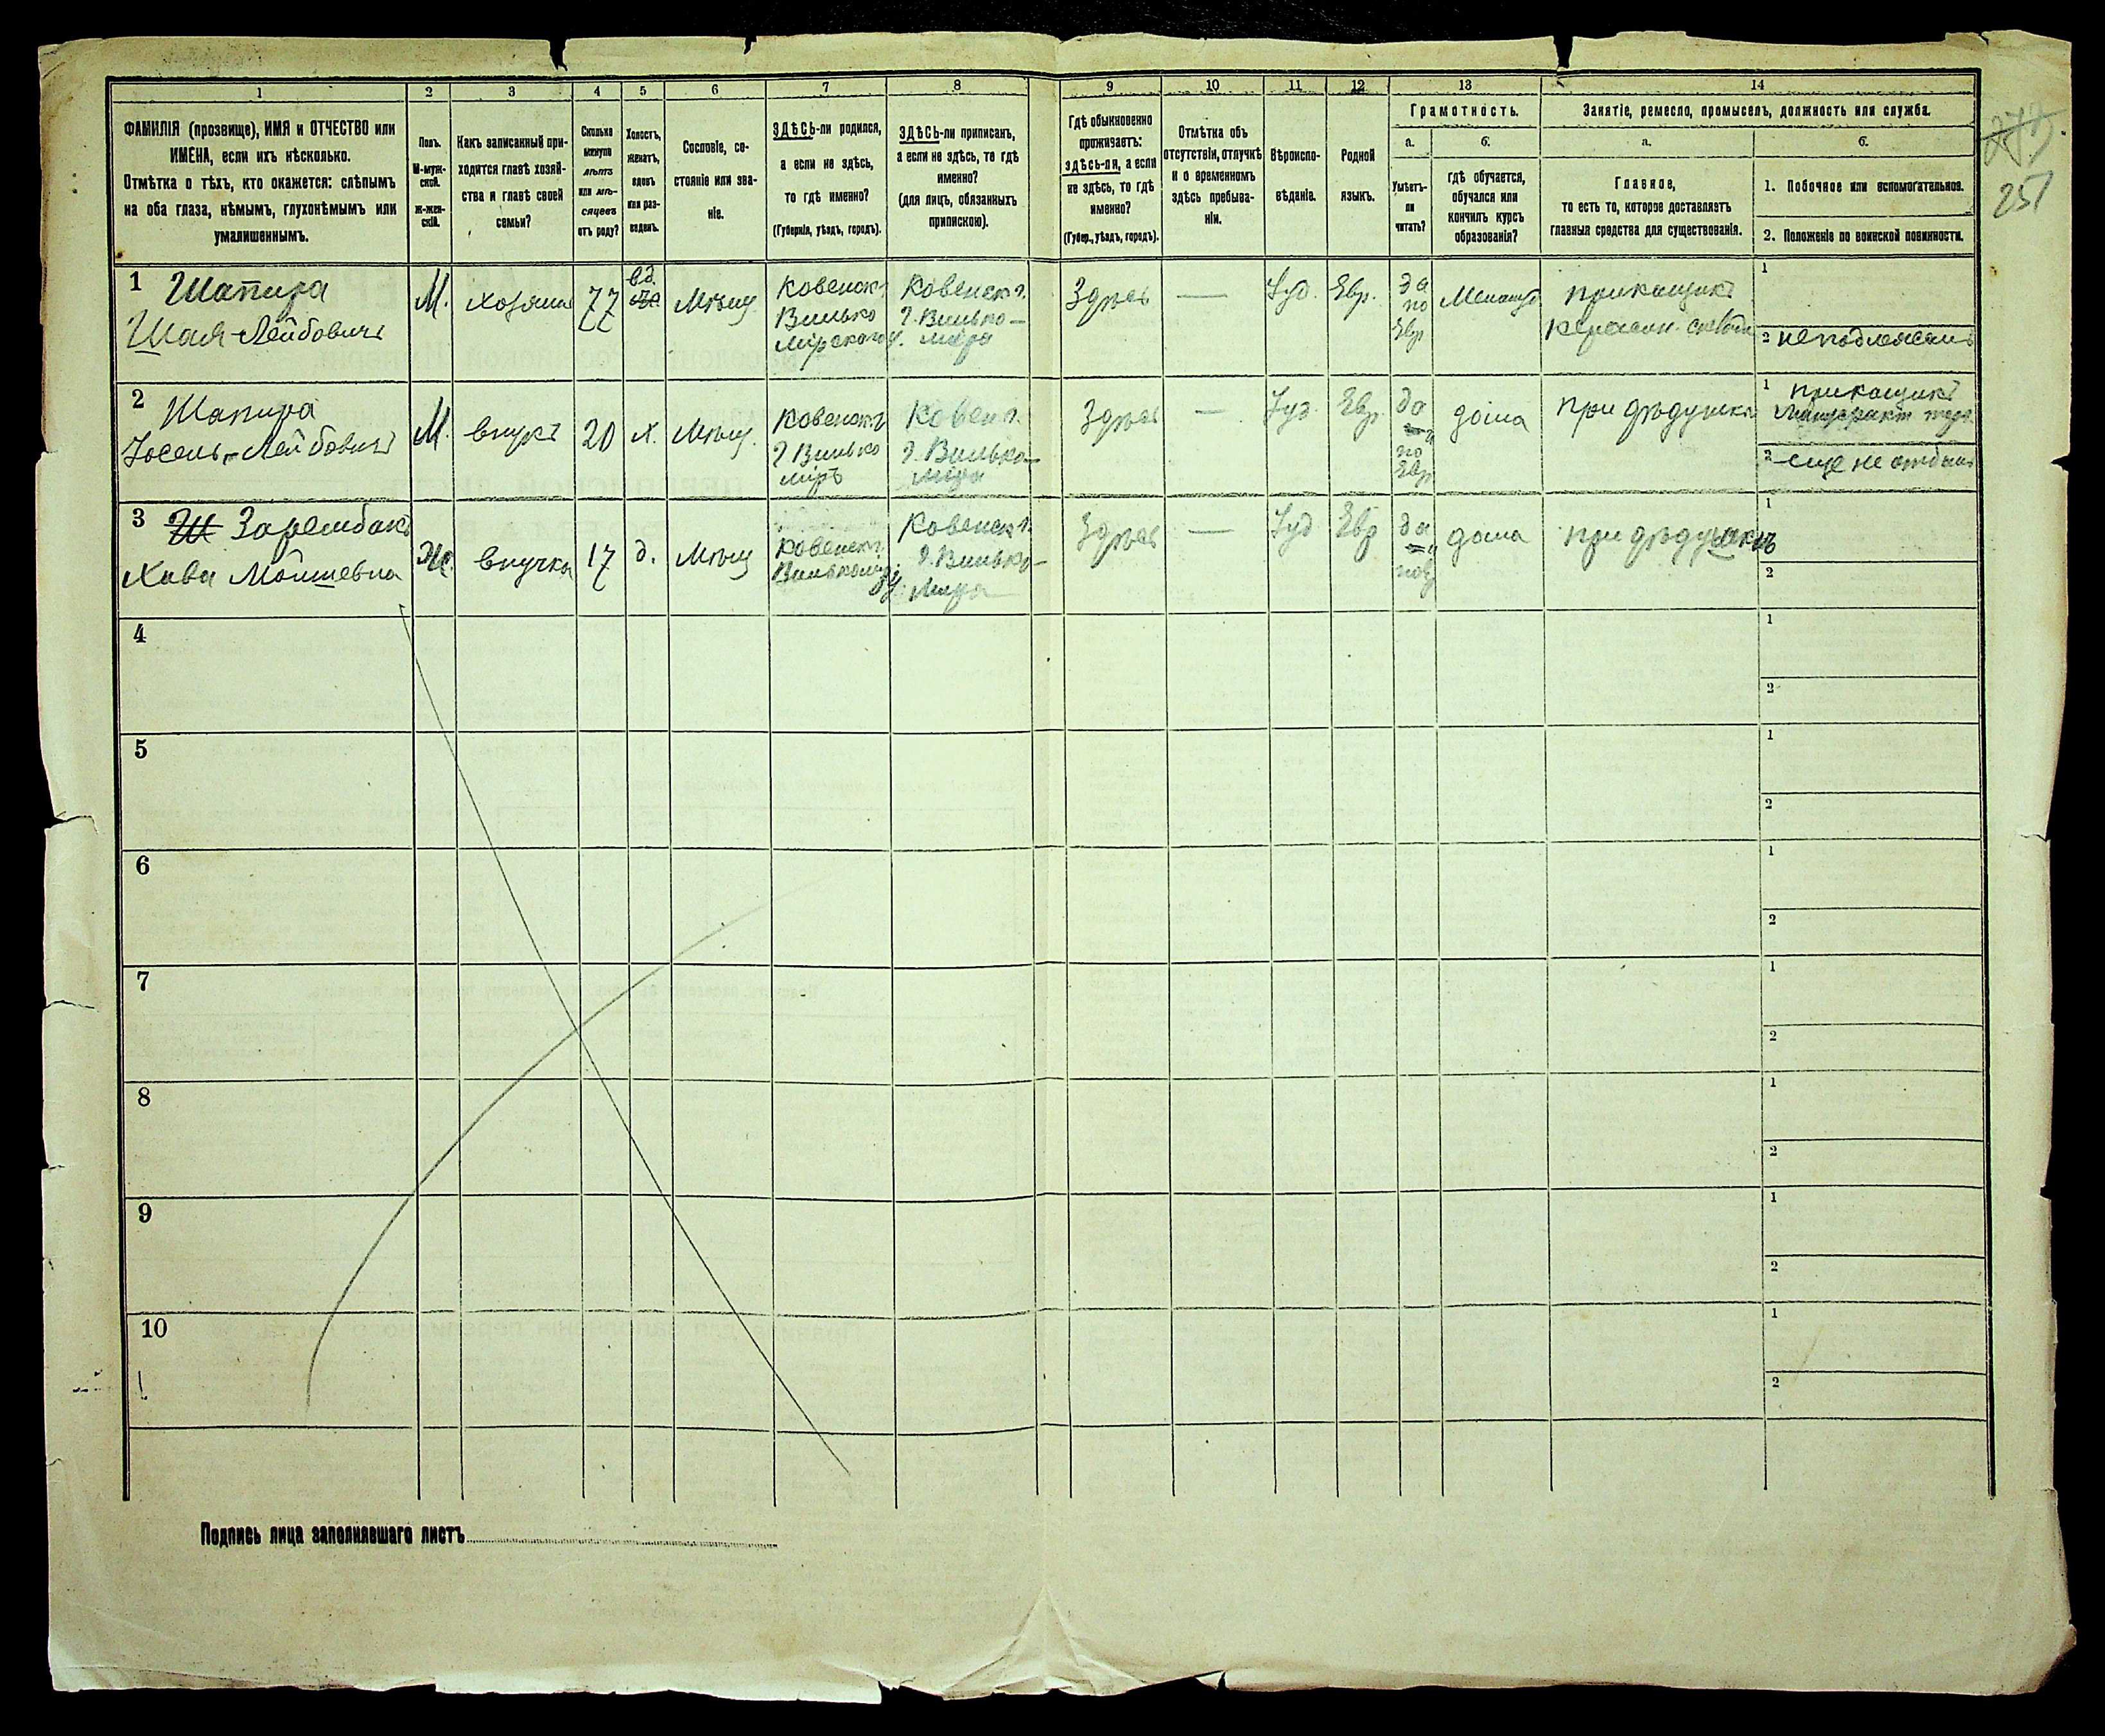 1 2 3 4 5 6 7 8 9 10 11 12 13 14
ФАМИЛІЯ (прозвище), ИМЯ и ОТЧЕСТВО или
ИМЕНА, если ихъ нѣсколько.
Отмѣтка о тѣхъ, кто окажется: слѣпымъ
на оба глаза, нѣмымъ, глухонѣмымъ или
умалишеннымъ.
Полъ.
М-муж-
ской.
ж-жен-
скій.
Какъ записанный при-
ходится главѣ хозяй-
ства и главѣ своей
семьи?
Сколько
минуло
лѣтъ
или мѣ-
сяцевъ
отъ роду?
Холостъ,
женатъ,
вдовъ
или раз-
веденъ.
Сословіе, со-
стояніе или зва-
ніе.
ЗДѢСЬ-ли родился,
а если не здѣсь,
то гдѣ именно?
(Губернія, уѣздъ, городъ).
ЗДѢСЬ-ли приписанъ,
а если не здѣсь, то гдѣ
именно?
(для лицъ, обязанныхъ
припискою).
Гдѣ обыкновенно
проживаетъ:
здѣсь-ли, а если
не здѣсь, то гдѣ
именно?
(Губер., уѣздъ, городъ).
Отмѣтка объ
отсутствіи, отлучкѣ
и о временномъ
здѣсь пребыва-
ніи.
Вѣроиспо-
вѣданіе.
Родной
языкъ.
Грамотность.
а.
Умѣетъ-
ли
читать?
б.
гдѣ обучается,
обучался или
кончилъ курсъ
образованія?
Занятіе, ремесло, промыселъ, должность или служба.
а.
Главное,
то есть то, которое доставляетъ
главныя средства для существованія.
б.
1. Побочное или вспомогательное.
2. Положеніе по воинской повинности.
251
1 Шапира
Шая-Лейбовичъ
М.
хозяинъ
77
вд.
Мѣщ.
Ковенск.
Вилько
мірскаго у.
Ковенск г.
г. Вилько-
мира
Здѣсь
—
Іуд.
Евр.
да
по
Евр
прикащикъ
керасин. склада
1
2 неподлежитъ
2 Шапира
Іосель-Лейбовичъ
М.
внукъ
20
х.
Мѣщ.
Ковенск г
г Вилько
міръ
Ковен г.
г. Вилько-
мира
Здѣсь
—
Іуд.
Евр.
да
по
Евр
дома
при дѣдушкѣ
1 прикащикъ
2 еще не отбылъ
3 Ш Зарембакъ
Хава Мойшевна
Ж.
внучка
17
д.
Мѣщ
Ковенск г
Вилькомир у.
Ковенск г.
г. Вилько-
мира
Здѣсь
—
Іуд
Евр
да
дома
при дѣдушкѣ
1
2
4
1
2
5
1
2
6
1
2
7
1
2
8
1
2
9
1
2
10
1
2
Подпись лица заполнявшаго листъ